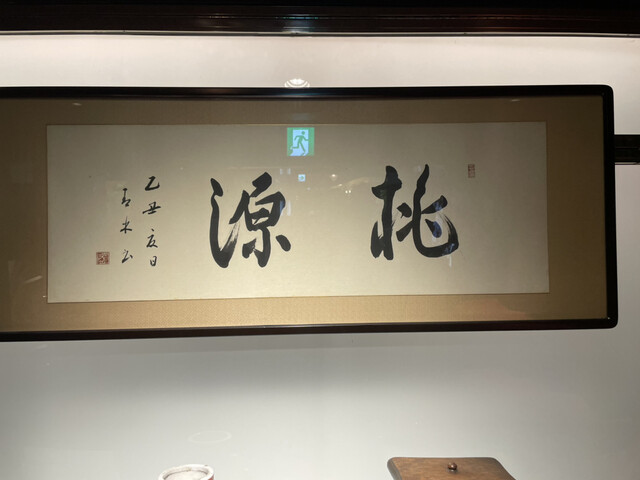 桃源
乙丑夏日